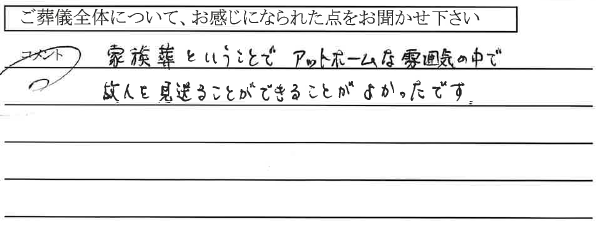 ご葬儀全体について、お感じになられた点をお聞かせ下さい
コメント
家族葬ということで アットホームな雰囲気の中で
故人を見送ることができることがよかったです。